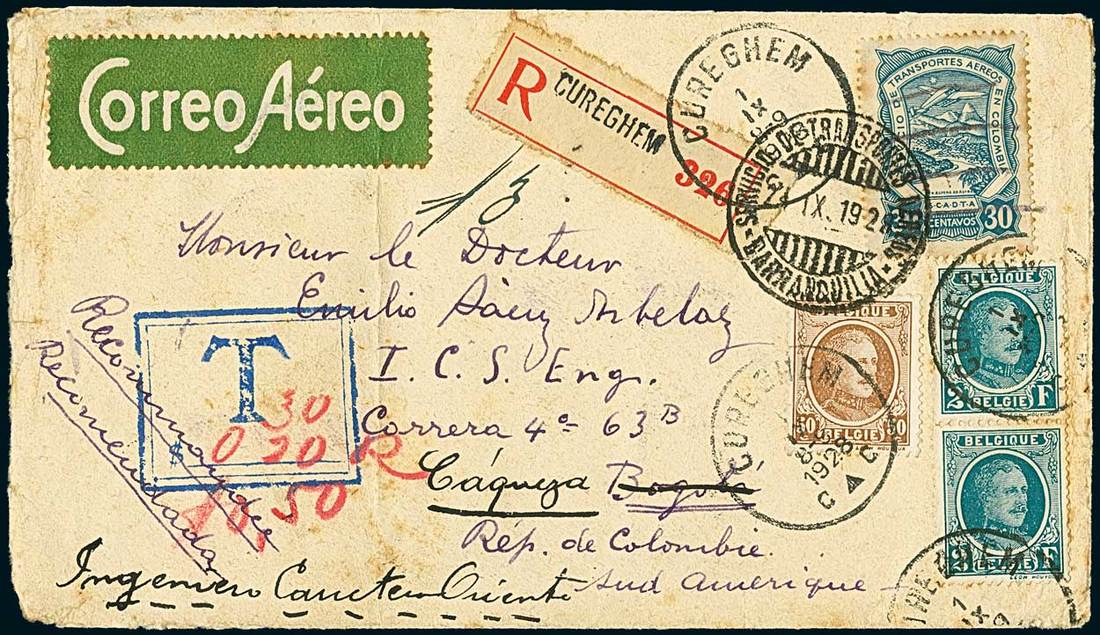 Correo Aéreo
R CUREGHEM
326
CUREGHEM
1
IX
SERVICIO DE TRANSPORTES AEREOS
IX. 192
BARRANQUILLA
SERVICIO DE TRANSPORTES AEREOS EN COLOMBIA
SCADTA
30 CENTAVOS 30
13
Monsieur le Docteur
Emilio Sáenz Arbelaez
I. C. S. Eng.
Carrera 4ª 63B
Cáqueza Bogotá
Rép. de Colombie.
Sud Amérique
Recommandée
Recomendada
T
$
30
0 20 R
50
Ingeniero Carretera Oriente
BELGIQUE
50 BELGIE 50
CUREGHEM
8
1928
C C
BELGIQUE
2 F BELGIE F
CUREGHEM
1
IX
BELGIQUE
2 F BELGIE F
1
IX